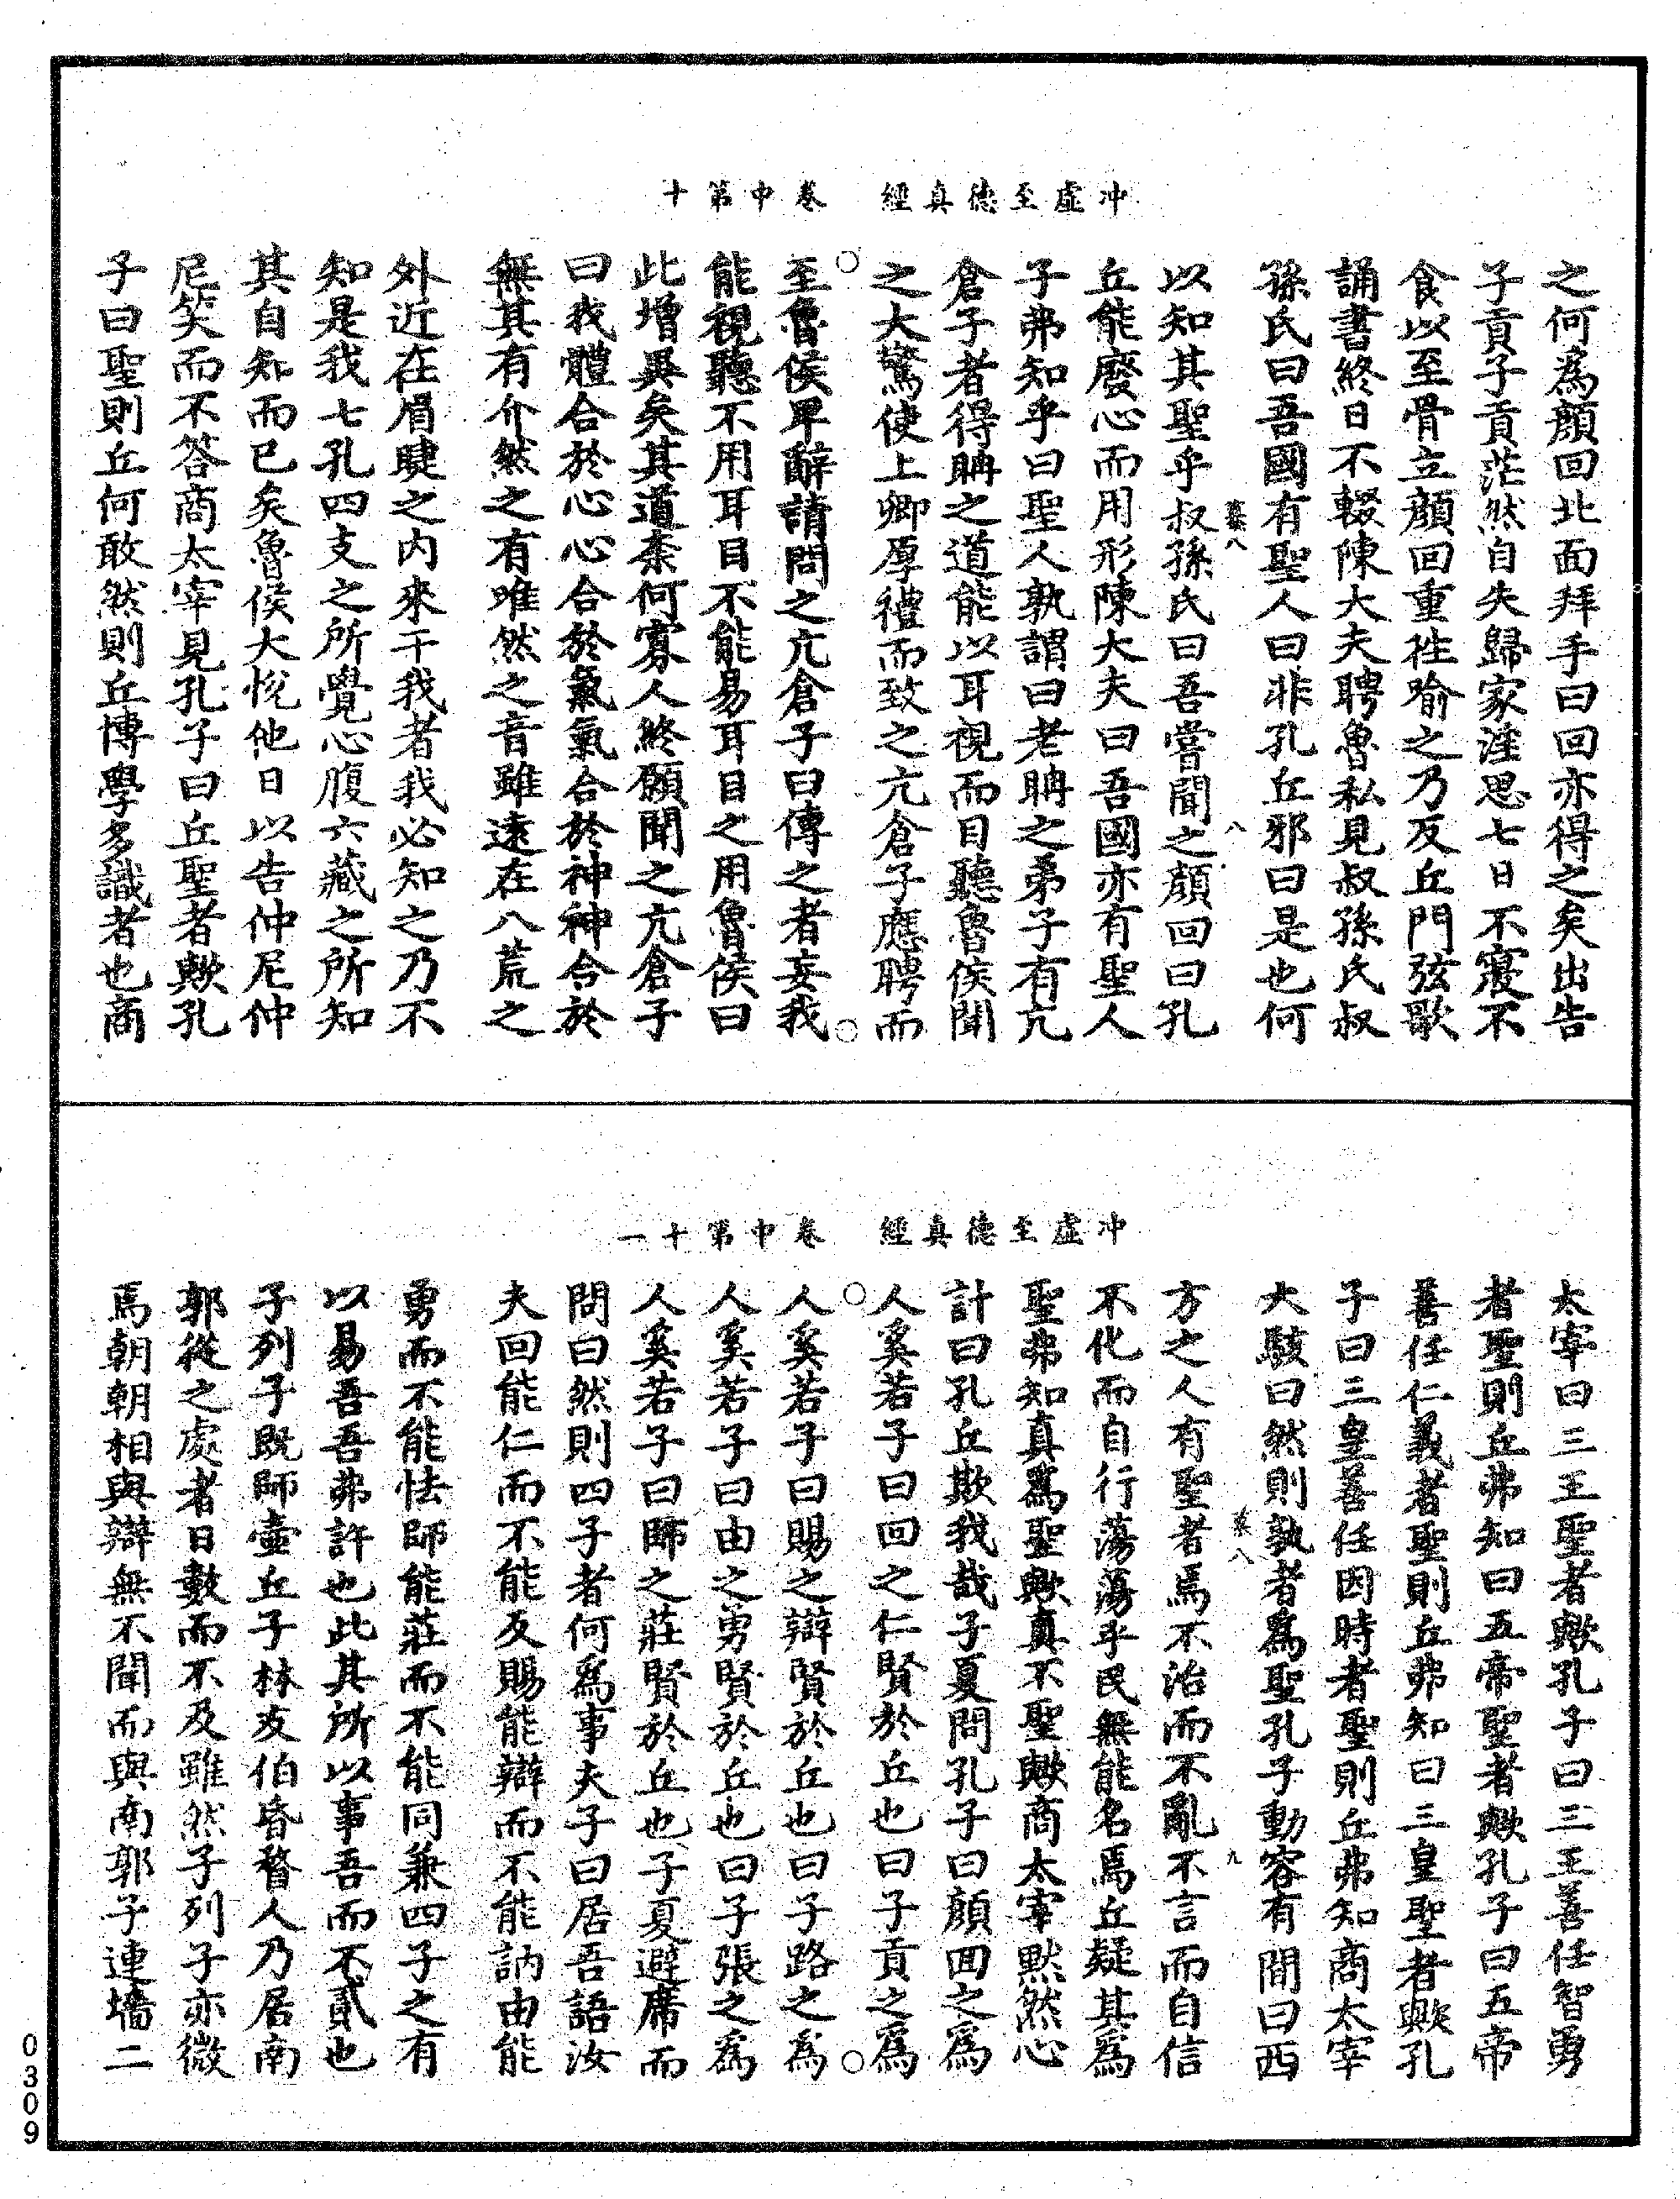 冲虛至德真經　卷中第十
之何為顏回北面拜手曰回亦得之矣出告
子貢子貢茫然自失歸家淫思七日不寢不
食以至骨立顏回重往喻之乃反丘門弦歌
誦書終日不輟陳大夫聘魯私見叔孫氏叔
孫氏曰吾國有聖人曰非孔丘邪曰是也何
慕八　八
以知其聖乎叔孫氏曰吾嘗聞之顏回曰孔
丘能廢心而用形陳大夫曰吾國亦有聖人
子弗知乎曰聖人孰謂曰老聃之弟子有亢
倉子者得聃之道能以耳視而目聽魯侯聞
之大驚使上卿厚禮而致之亢倉子應聘而
至魯侯卑辭請問之亢倉子曰傳之者妄我
能視聽不用耳目不能易耳目之用魯侯曰
此增異矣其道柰何寡人終願聞之亢倉子
曰我體合於心心合於氣氣合於神神合於
無其有介然之有唯然之音雖遠在八荒之
外近在眉睫之內來干我者我必知之乃不
知是我七孔四支之所覺心腹六藏之所知
其自知而已矣魯侯大悅他日以告仲尼仲
尼笑而不答商太宰見孔子曰丘聖者歟孔
子曰聖則丘何敢然則丘博學多識者也商
冲虛至德真經　卷中第十一
太宰曰三王聖者歟孔子曰三王善任智勇
者聖則丘弗知曰五帝聖者歟孔子曰五帝
善任仁義者聖則丘弗知曰三皇聖者歟孔
子曰三皇善任因時者聖則丘弗知商太宰
大駭曰然則孰者為聖孔子動容有間曰西
慕八　九
方之人有聖者焉不治而不亂不言而自信
不化而自行蕩蕩乎民無能名焉丘疑其為
聖弗知真為聖歟真不聖歟商太宰默然心
計曰孔丘欺我哉子夏問孔子曰顏回之為
人奚若子曰回之仁賢於丘也曰子貢之為
人奚若子曰賜之辯賢於丘也曰子路之為
人奚若子曰由之勇賢於丘也曰子張之為
人奚若子曰師之莊賢於丘也子夏避席而
問曰然則四子者何為事夫子曰居吾語汝
夫回能仁而不能反賜能辯而不能訥由能
勇而不能怯師能莊而不能同兼四子之有
以易吾吾弗許也此其所以事吾而不貳也
子列子既師壺丘子林友伯昏瞀人乃居南
郭從之處者日數而不及雖然子列子亦微
焉朝朝相與辯無不聞而與南郭子連墻二
0309